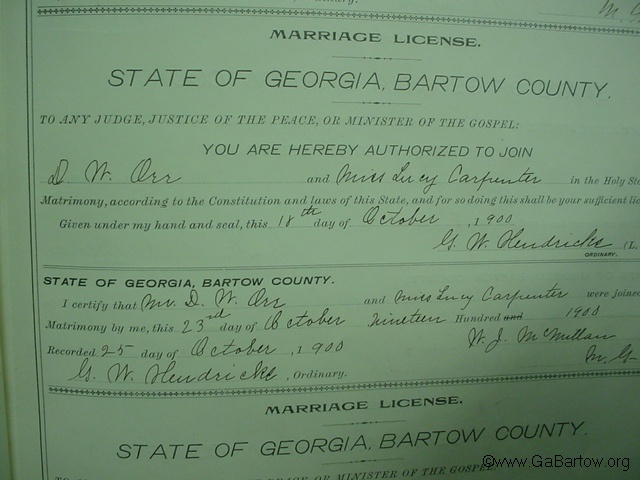 M. G
MARRIAGE LICENSE.
STATE OF GEORGIA, BARTOW COUNTY.
TO ANY JUDGE, JUSTICE OF THE PEACE, OR MINISTER OF THE GOSPEL:
YOU ARE HEREBY AUTHORIZED TO JOIN
D. W. Orr and Miss Lucy Carpenter in the Holy Sta
Matrimony, according to the Constitution and laws of this State, and for so doing this shall be your sufficient lic
Given under my hand and seal, this 18th day of October, 1900
G. W. Hendricks (L.
ORDINARY.
STATE OF GEORGIA, BARTOW COUNTY.
I certify that Mr. D. W. Orr and Miss Lucy Carpenter were joined
Matrimony by me, this 23rd day of October Nineteen Hundred and 1900
Recorded 25 day of October, 1900 W. J. McMillan
G. W. Hendricks, Ordinary. M. G
MARRIAGE LICENSE.
STATE OF GEORGIA, BARTOW COUNTY.
PEACE, OR MINISTER OF THE GOSPEL:
©www.GaBartow.org